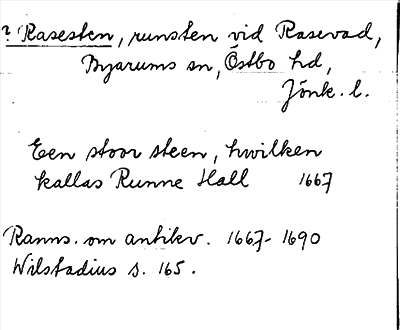 ? Rasesten, runsten vid Rasevad,
Byarums sn, Östbo hd,
Jönk. l.
Een stoor steen, hwilken
kallas Runne Hall 1667
Ranns. om antikv. 1667-1690
Wilstadius s. 165.